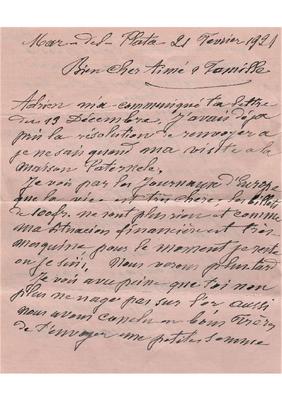 Mar-del-Plata 21 Fevrier 1921
Bien cher Aimé & Famille
Adrien m'a communiqué ta lettre
du 19 Décembre, J'avais déja
pris la résolution de renvoyer a
je ne sais quand ma visite a la
maison Paternele.
Je vois par les Journaux d'Europe
que la vie est très chère, les billets
de 100 frs. ne sont plus rien et comme
ma situacion financière est très
mesquine pour le moment je reste
ou je suis, Nous verons plus tard
Je vois avec peine que toi non
plus ne nages pas sur l'or aussi
nous avons conclu en bons Frères
de t'envoyer une petite somme